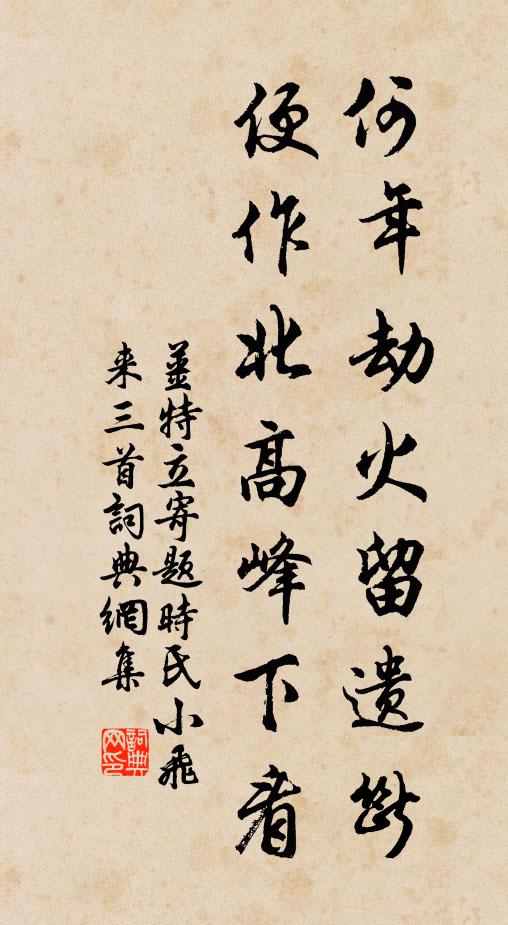 何年劫火留遗斷
便作北高峰下看
薑特立寄题時氏小飛
来三首詞典網集
詞典
网印